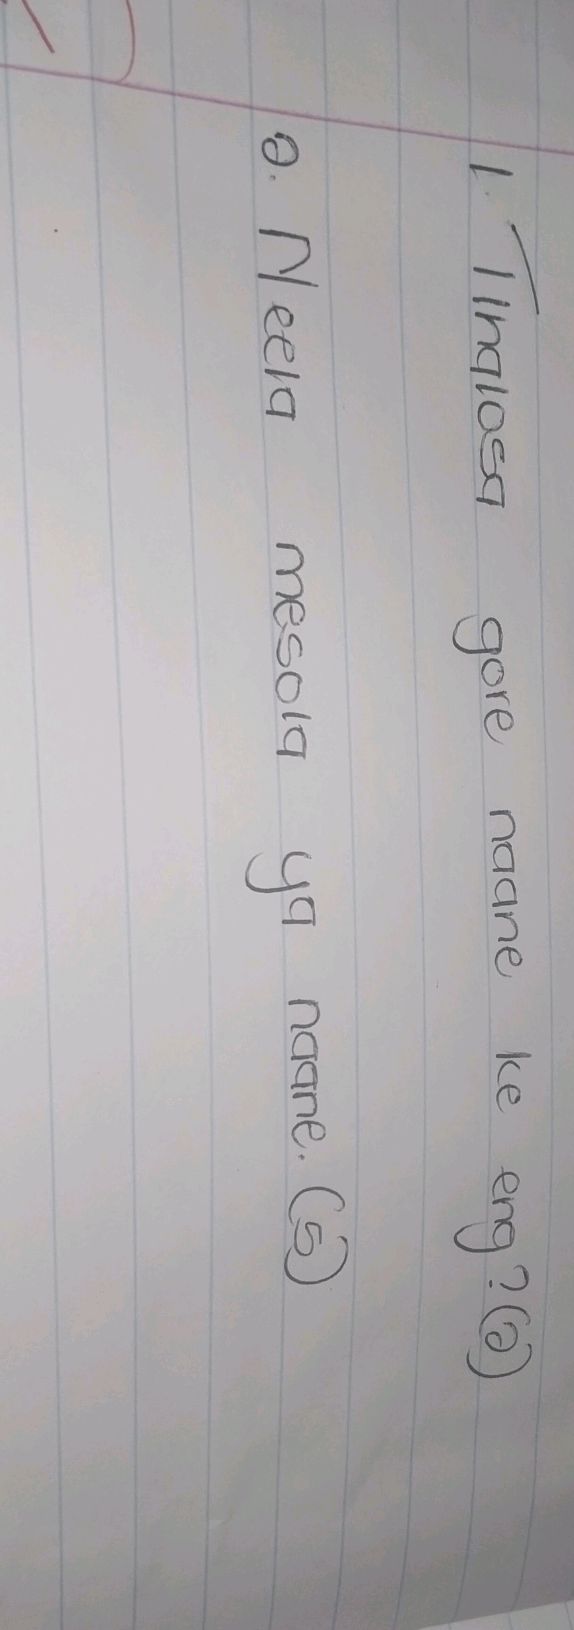 1. Tlhalosa gore naane ke eng? (2)
2. Neela mesola ya naane. (5)